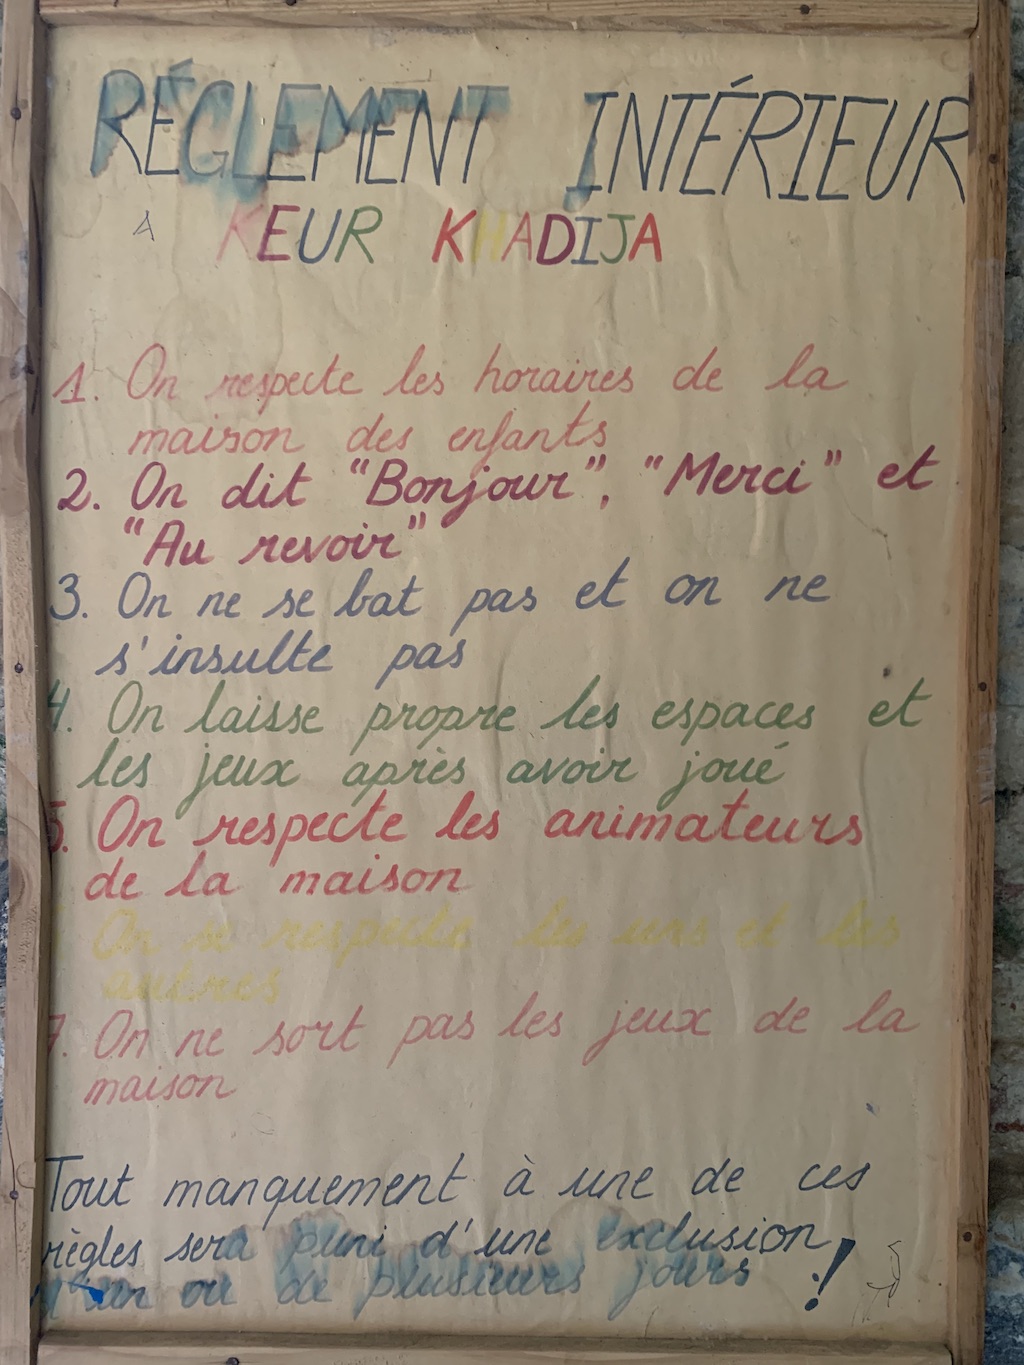 RÉGLEMENT INTÉRIEUR
A KEUR KHADIJA
1. On respecte les horaires de la
maison des enfants
2. On dit "Bonjour", "Merci" et
"Au revoir"
3. On ne se bat pas et on ne
s'insulte pas
4. On laisse propre les espaces et
les jeux après avoir joué
5. On respecte les animateurs
de la maison
On se respecte les uns et les
autres
7. On ne sort pas les jeux de la
maison
Tout manquement à une de ces
règles sera puni d'une exclusion
d'un ou de plusieurs jours !